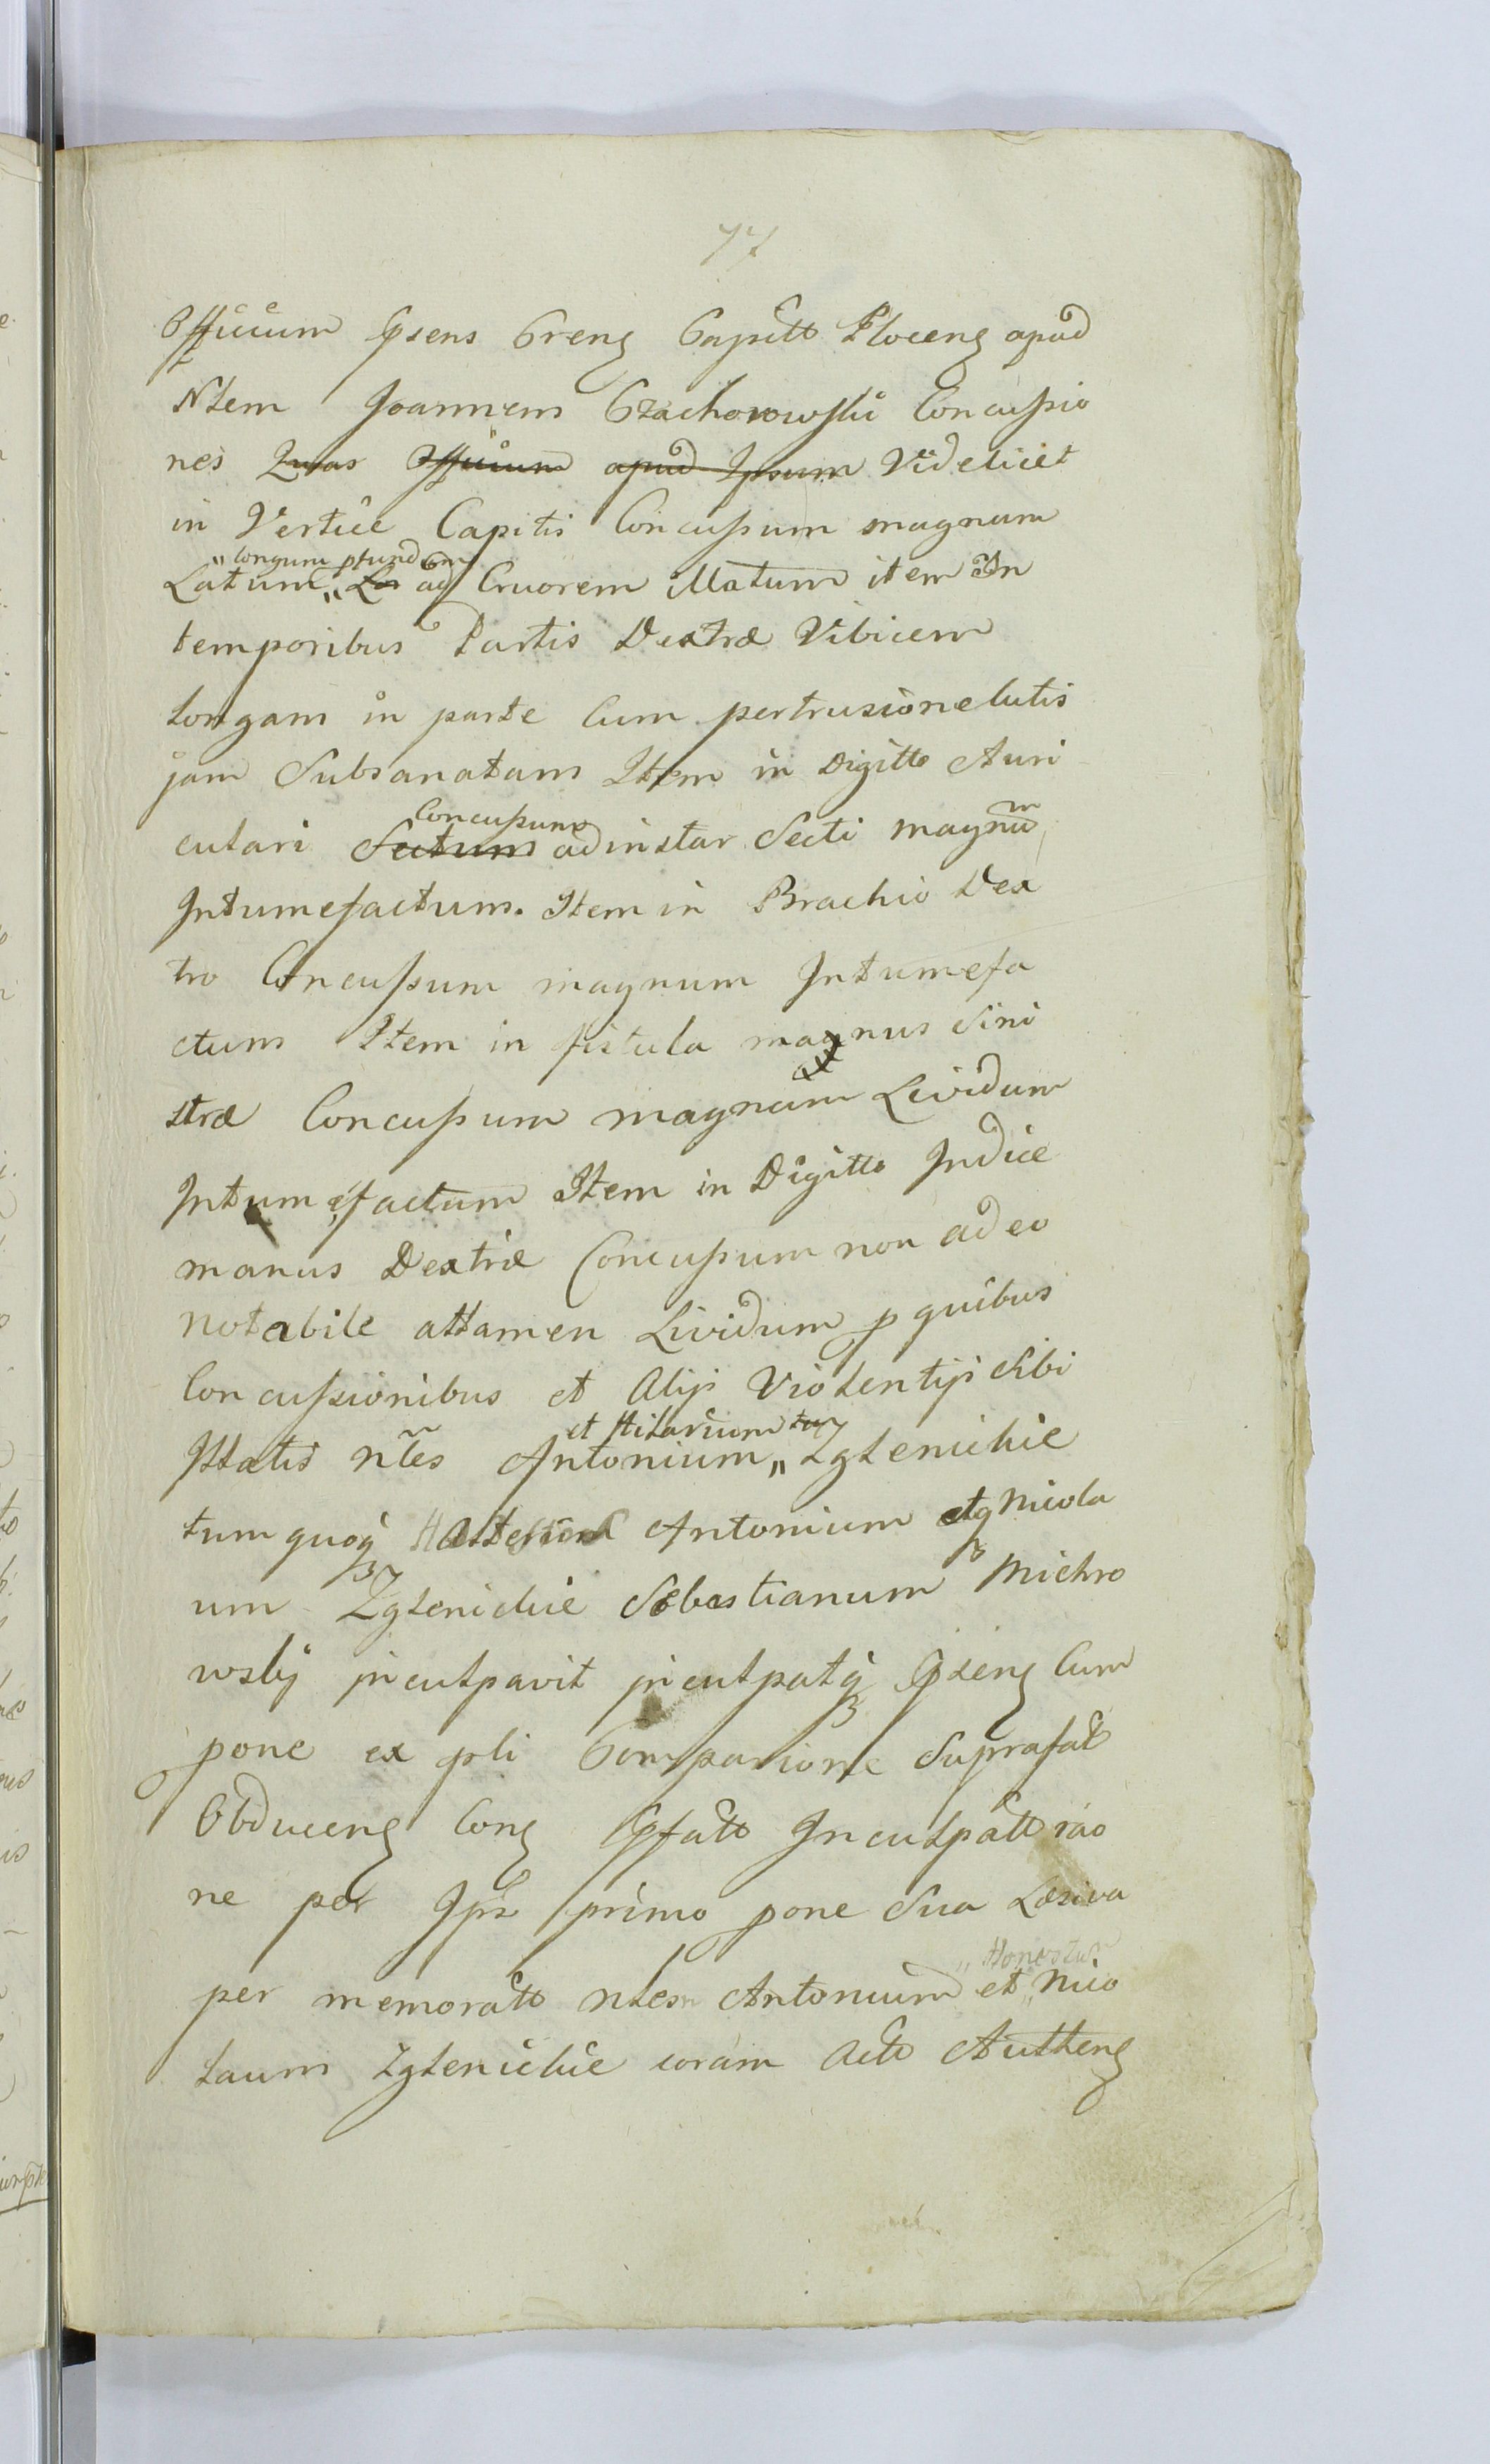 77
Officium Pnsens Cfrens Capitt Plocens apud
Nlem Joannem Czachorowski Concussio
nes Quas Officium apud Ipsum Videlicet
in Vertice Capitis Concussum magnum
" longum pfundum
Latum " Lon ad Cruorem illatum item In
temporibus Partis Dextræ Vibicem
longam in parte Cum pertrusione Cutis
jam Subsanatam Item in Digitto Auri
Concussum
culari Sectum ad instar Secti magnum
Intumefactum. Item in Brachio Dex
tro Concussum magnum Intumefa
ctum Item in fistula magnus Sini
stræ Concussum magnum Lividum
Intumefactum Item in Digitto Indice
manus Dextræ Concussum non adeo
notabile attamen Lividum p quibus
Concussionibus et Alijs Violentijs Sibi
et Hilarium
Illatis nles Antonium " Zglenickie
tum quoq Antonium etq Nicola
um Zglenickie Sebastianum Michro
wskij inculpavit inculpatq Pnsens Cum
pone ex pli Comparione Suprafat
Obducens Cons Pfatt Inculpatt rao
ne per Ips primo pone Sua Læsiva
" Honestum
per memoratt nles Antonium et " Nico
laum Zglenickie coram Actt Autthens